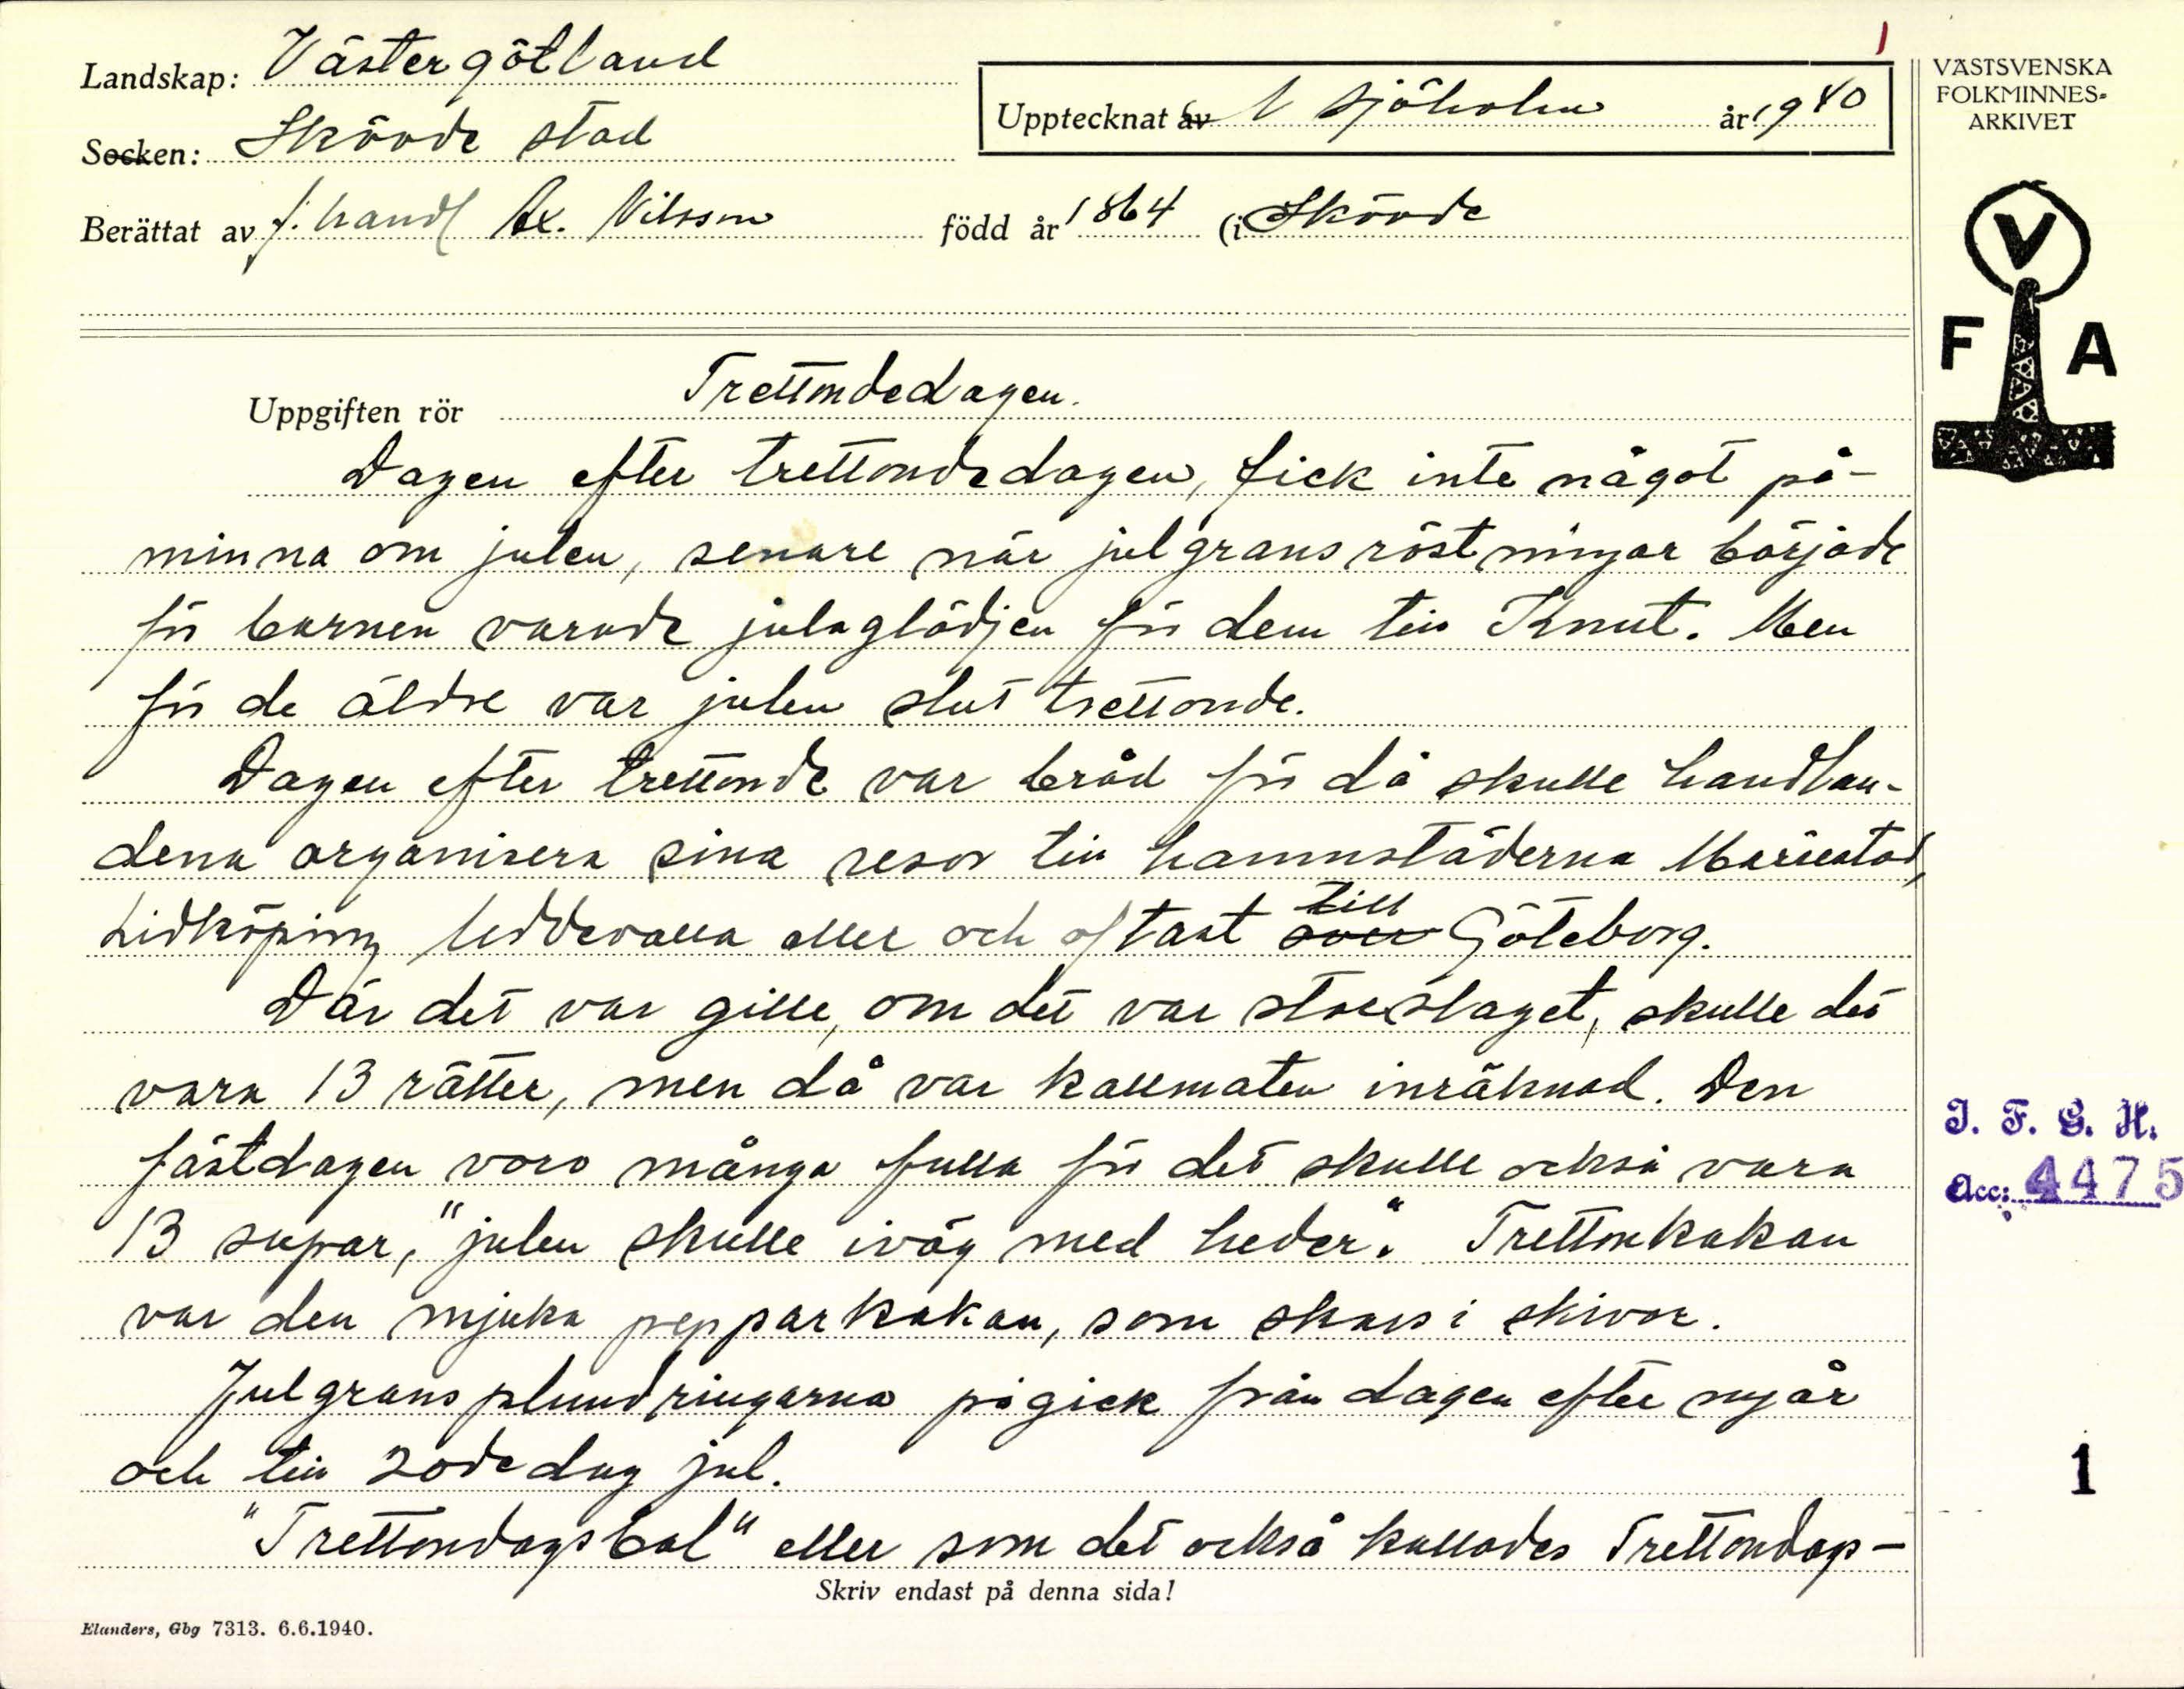 1
Landskap: Västergötland
Socken: Skövde stad
Upptecknat av Sjöholm år 1940
Berättat av f. handl Ax. Nilsson född år 1864 (i Skövde
Uppgiften rör Trettondedagen.
Dagen efter trettondedagen, fick inte något på-
minna om julen, senare när julgransröstningar började
för barnen varade julaglädjen för dem till Knut. Men
för de äldre var julen slut trettonde.
Dagen efter trettonde var bråd för då skulle handlan-
dena organisera sina resor till hamnstäderna Mariestad,
Lidköping Uddevalla eller och oftast till Göteborg.
Där det var gille, om det var storslaget, skulle det
vara 13 rätter, men då var kallmaten inräknad. Den
fästdagen voro många fulla för det skulle också vara
13 supar, "julen skulle iväg med heder". Trettonkakan
var den mjuka pepparkakan, som skars i skivor.
Julgransplundringarna pågick från dagen efter nyår
och till 20de dag jul.
"Trettondagsbal" eller som det också kallades Trettondags-
Skriv endast på denna sida!
Elanders, Gbg 7313. 6.6.1940.
VÄSTSVENSKA
FOLKMINNES-
ARKIVET
V
F A
I. F. G. H.
Acc: 4475
1